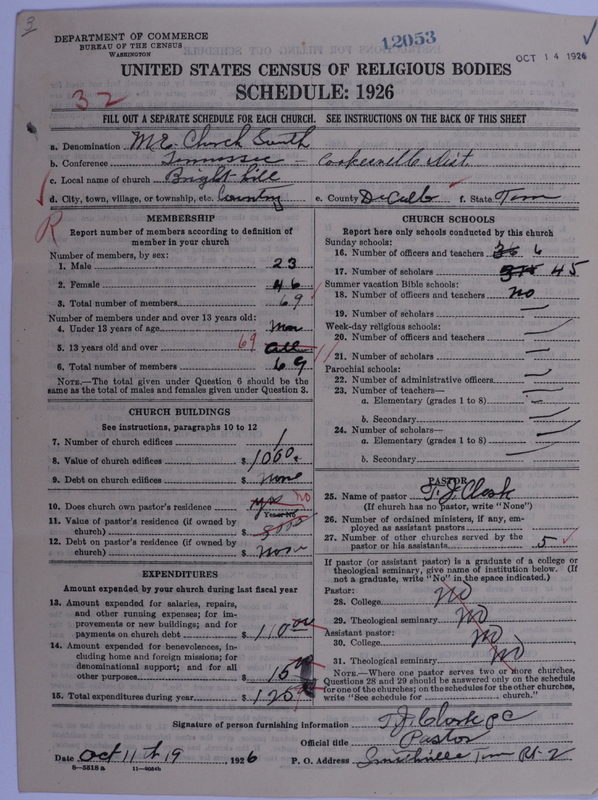 3
DEPARTMENT OF COMMERCE
BUREAU OF THE CENSUS
WASHINGTON
12053
OCT 14 1926
UNITED STATES CENSUS OF RELIGIOUS BODIES
SCHEDULE: 1926
32
FILL OUT A SEPARATE SCHEDULE FOR EACH CHURCH. SEE INSTRUCTIONS ON THE BACK OF THIS SHEET
a. Denomination M.E. Church South
b. Conference Tennessee - Cookeville Dist.
c. Local name of church Bright Hill
d. City, town, village, or township, etc. Country e. County DeCalb f. State Tenn
R
MEMBERSHIP
Report number of members according to definition of
member in your church
Number of members, by sex:
1. Male 23
2. Female 46
3. Total number of members 69
Number of members under and over 13 years old:
4. Under 13 years of age
5. 13 years old and over 69 all
6. Total number of members 69
NOTE.—The total given under Question 6 should be
same as the total of males and females given under Question 3.
CHURCH BUILDINGS
See instructions, paragraphs 10 to 12
7. Number of church edifices 1
8. Value of church edifices $ 1000.
9. Debt on church edifices $ none
10. Does church own pastor's residence yes no
Yes or No
11. Value of pastor's residence (if owned by
church) $
12. Debt on pastor's residence (if owned by
church) $ none
EXPENDITURES
Amount expended by your church during last fiscal year
13. Amount expended for salaries, repairs,
and other running expenses; for im-
provements or new buildings; and for
payments on church debt $ 110 00
14. Amount expended for benevolences, in-
cluding home and foreign missions; for
denominational support; and for all
other purposes $ 15 00
15. Total expenditures during year $ 125
CHURCH SCHOOLS
Report here only schools conducted by this church
Sunday schools:
16. Number of officers and teachers 6
17. Number of scholars 45
Summer vacation Bible schools:
18. Number of officers and teachers no
19. Number of scholars —
Week-day religious schools:
20. Number of officers and teachers —
21. Number of scholars —
Parochial schools:
22. Number of administrative officers —
23. Number of teachers—
a. Elementary (grades 1 to 8) —
b. Secondary —
24. Number of scholars—
a. Elementary (grades 1 to 8) —
b. Secondary —
PASTOR
25. Name of pastor T. J. Clark
(If church has no pastor, write "None")
26. Number of ordained ministers, if any, em-
ployed as assistant pastors
27. Number of other churches served by the
pastor or his assistants 5
If pastor (or assistant pastor) is a graduate of a college or
theological seminary, give name of institution below. (If
not a graduate, write "No" in the space indicated.)
Pastor:
28. College No
29. Theological seminary No
Assistant pastor:
30. College No
31. Theological seminary No
NOTE.—Where one pastor serves two or more churches,
Questions 28 and 29 should be answered only on the schedule
for one of the churches; on the schedules for the other churches,
write "See schedule for church."
Signature of person furnishing information T. J. Clark PC
Official title Pastor
Date Oct 11th 19, 1926 P. O. Address Smithville Tenn Rt-2
8—5518 a 11—9084b